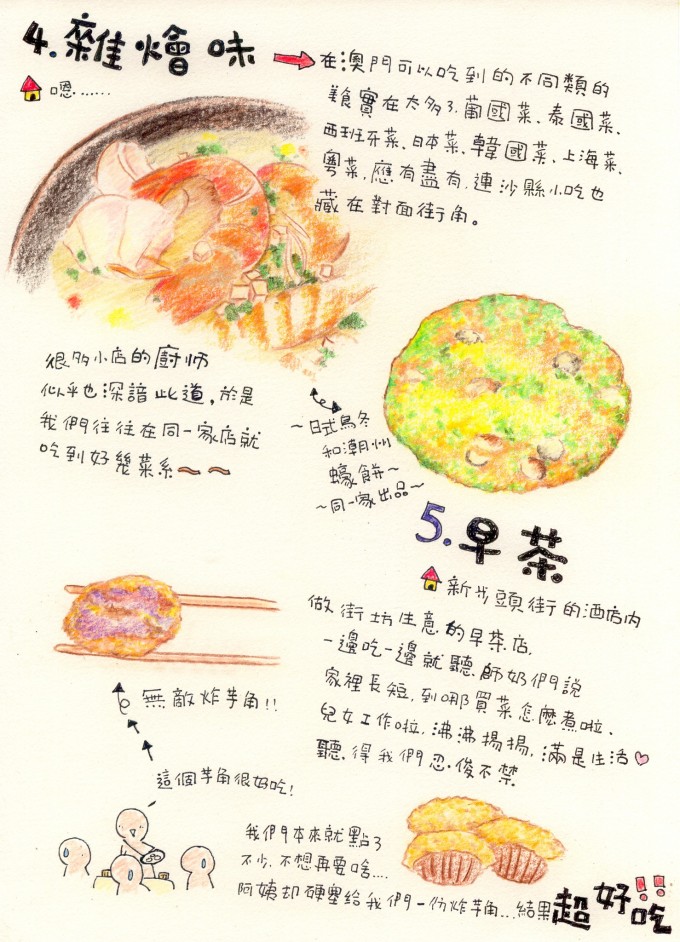 4.雜燴味
嗯……
在澳門可以吃到的不同類的
美食實在太多了.葡國菜、泰國菜、
西班牙菜、日本菜、韓國菜、上海菜、
粵菜,應有盡有,連沙縣小吃也
藏在對面街角。
很多小店的廚师
似乎也深諳此道,於是
我們往往在同一家店就
吃到好幾菜系~~
~日式烏冬
和潮州
蠔餅~
~同一家出品~
5.早茶
新步頭街的酒店内
做街坊生意的早茶店,
一邊吃一邊就聽師奶們說
家裡長短,到哪買菜怎麼煮啦、
兒女工作啦,沸沸揚揚,滿是生活
聽得我們忍俊不禁
無敵炸芋角!!
這個芋角很好吃!
我們本來就點了
不少,不想再要啥……
阿姨却硬塞給我們一份炸芋角…結果超好吃!!